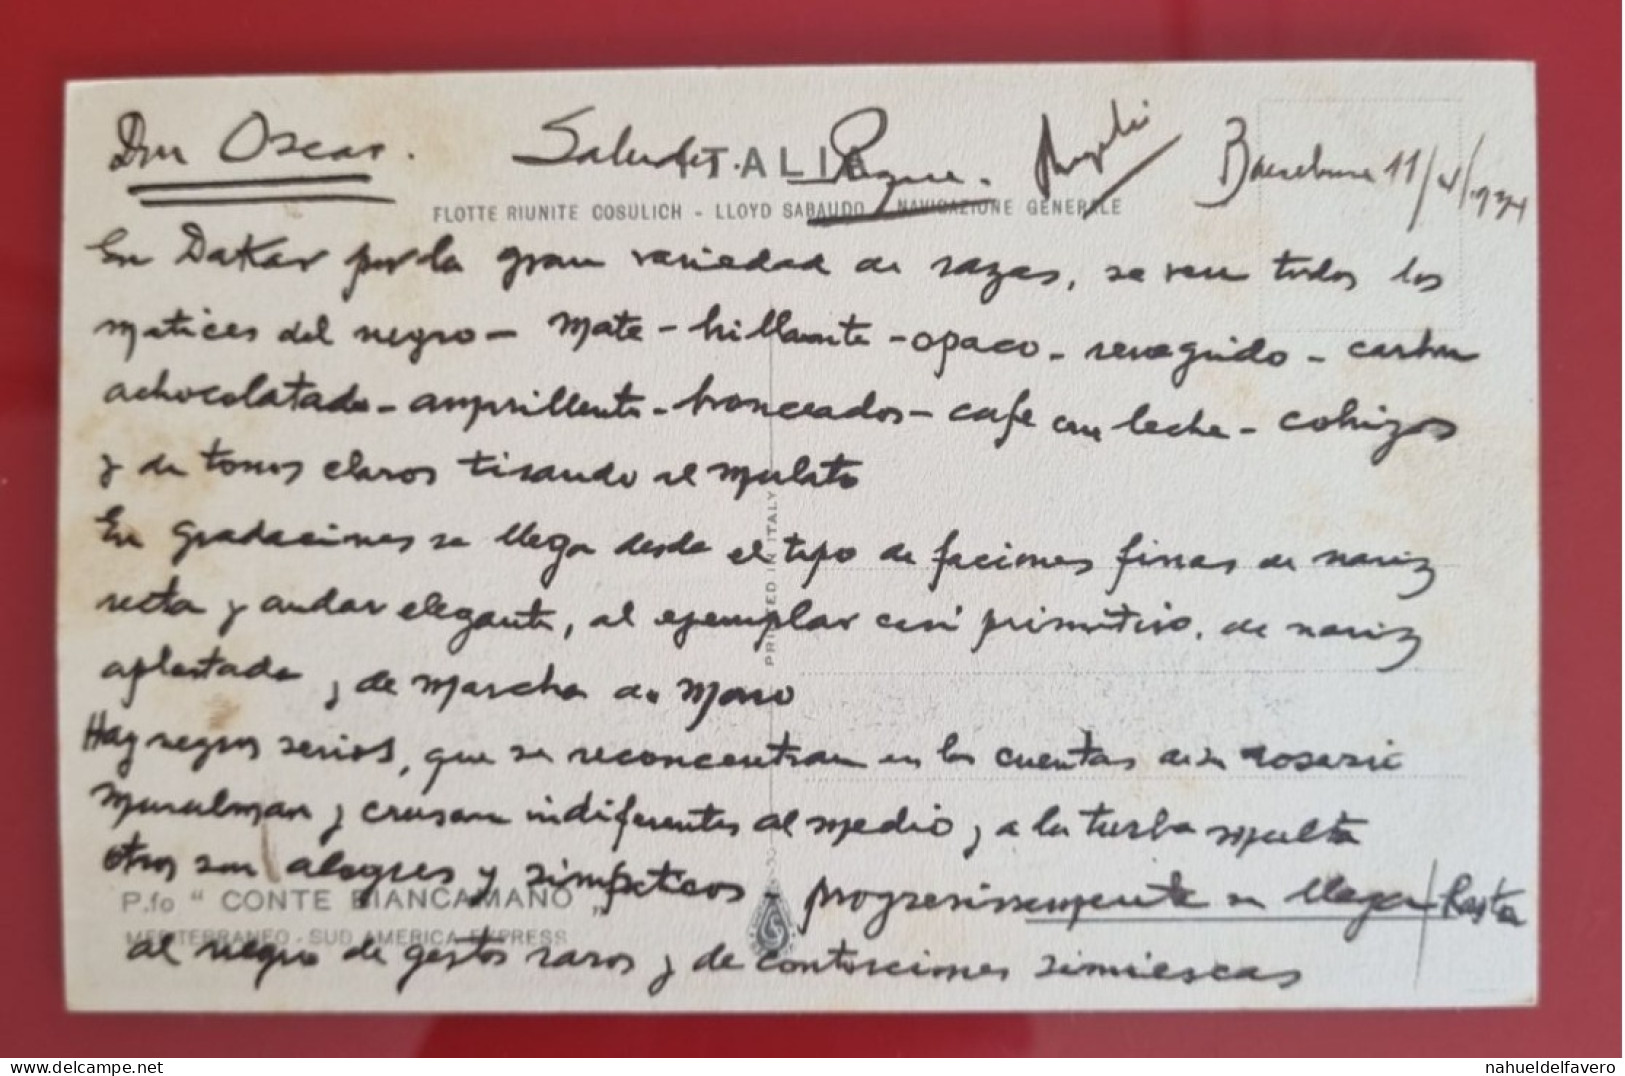 Don Oscar. Saludos. Barcelona 11/4/934
ITALIA
FLOTTE RIUNITE COSULICH - LLOYD SABAUDO - NAVIGAZIONE GENERALE
En Dakar por la gran variedad de razas, se ven todos los
matices del negro - mate - brillante - opaco - renegrido - carbon
achocolatado - amarillento - bronceados - cafe con leche - cobrizos
y de tonos claros tirando al mulato
En gradaciones se llega desde el tipo de faciones finas de nariz
recta y andar elegante, al ejemplar casi primitivo, de nariz
aplastada y de marcha de mono
Hay negros serios, que se reconcentran en las cuentas de su rosario
musulman y crusan indiferentes al medio y a la turba multa
otros son alegres y simpaticos progresivamente se llega hasta
al negro de gestos raros y de contorciones simiescas
P.fo " CONTE BIANCAMANO "
MEDITERRANEO - SUD AMERICA EXPRESS
PRINTED IN ITALY
www.delcampe.net
nahueldelfavero